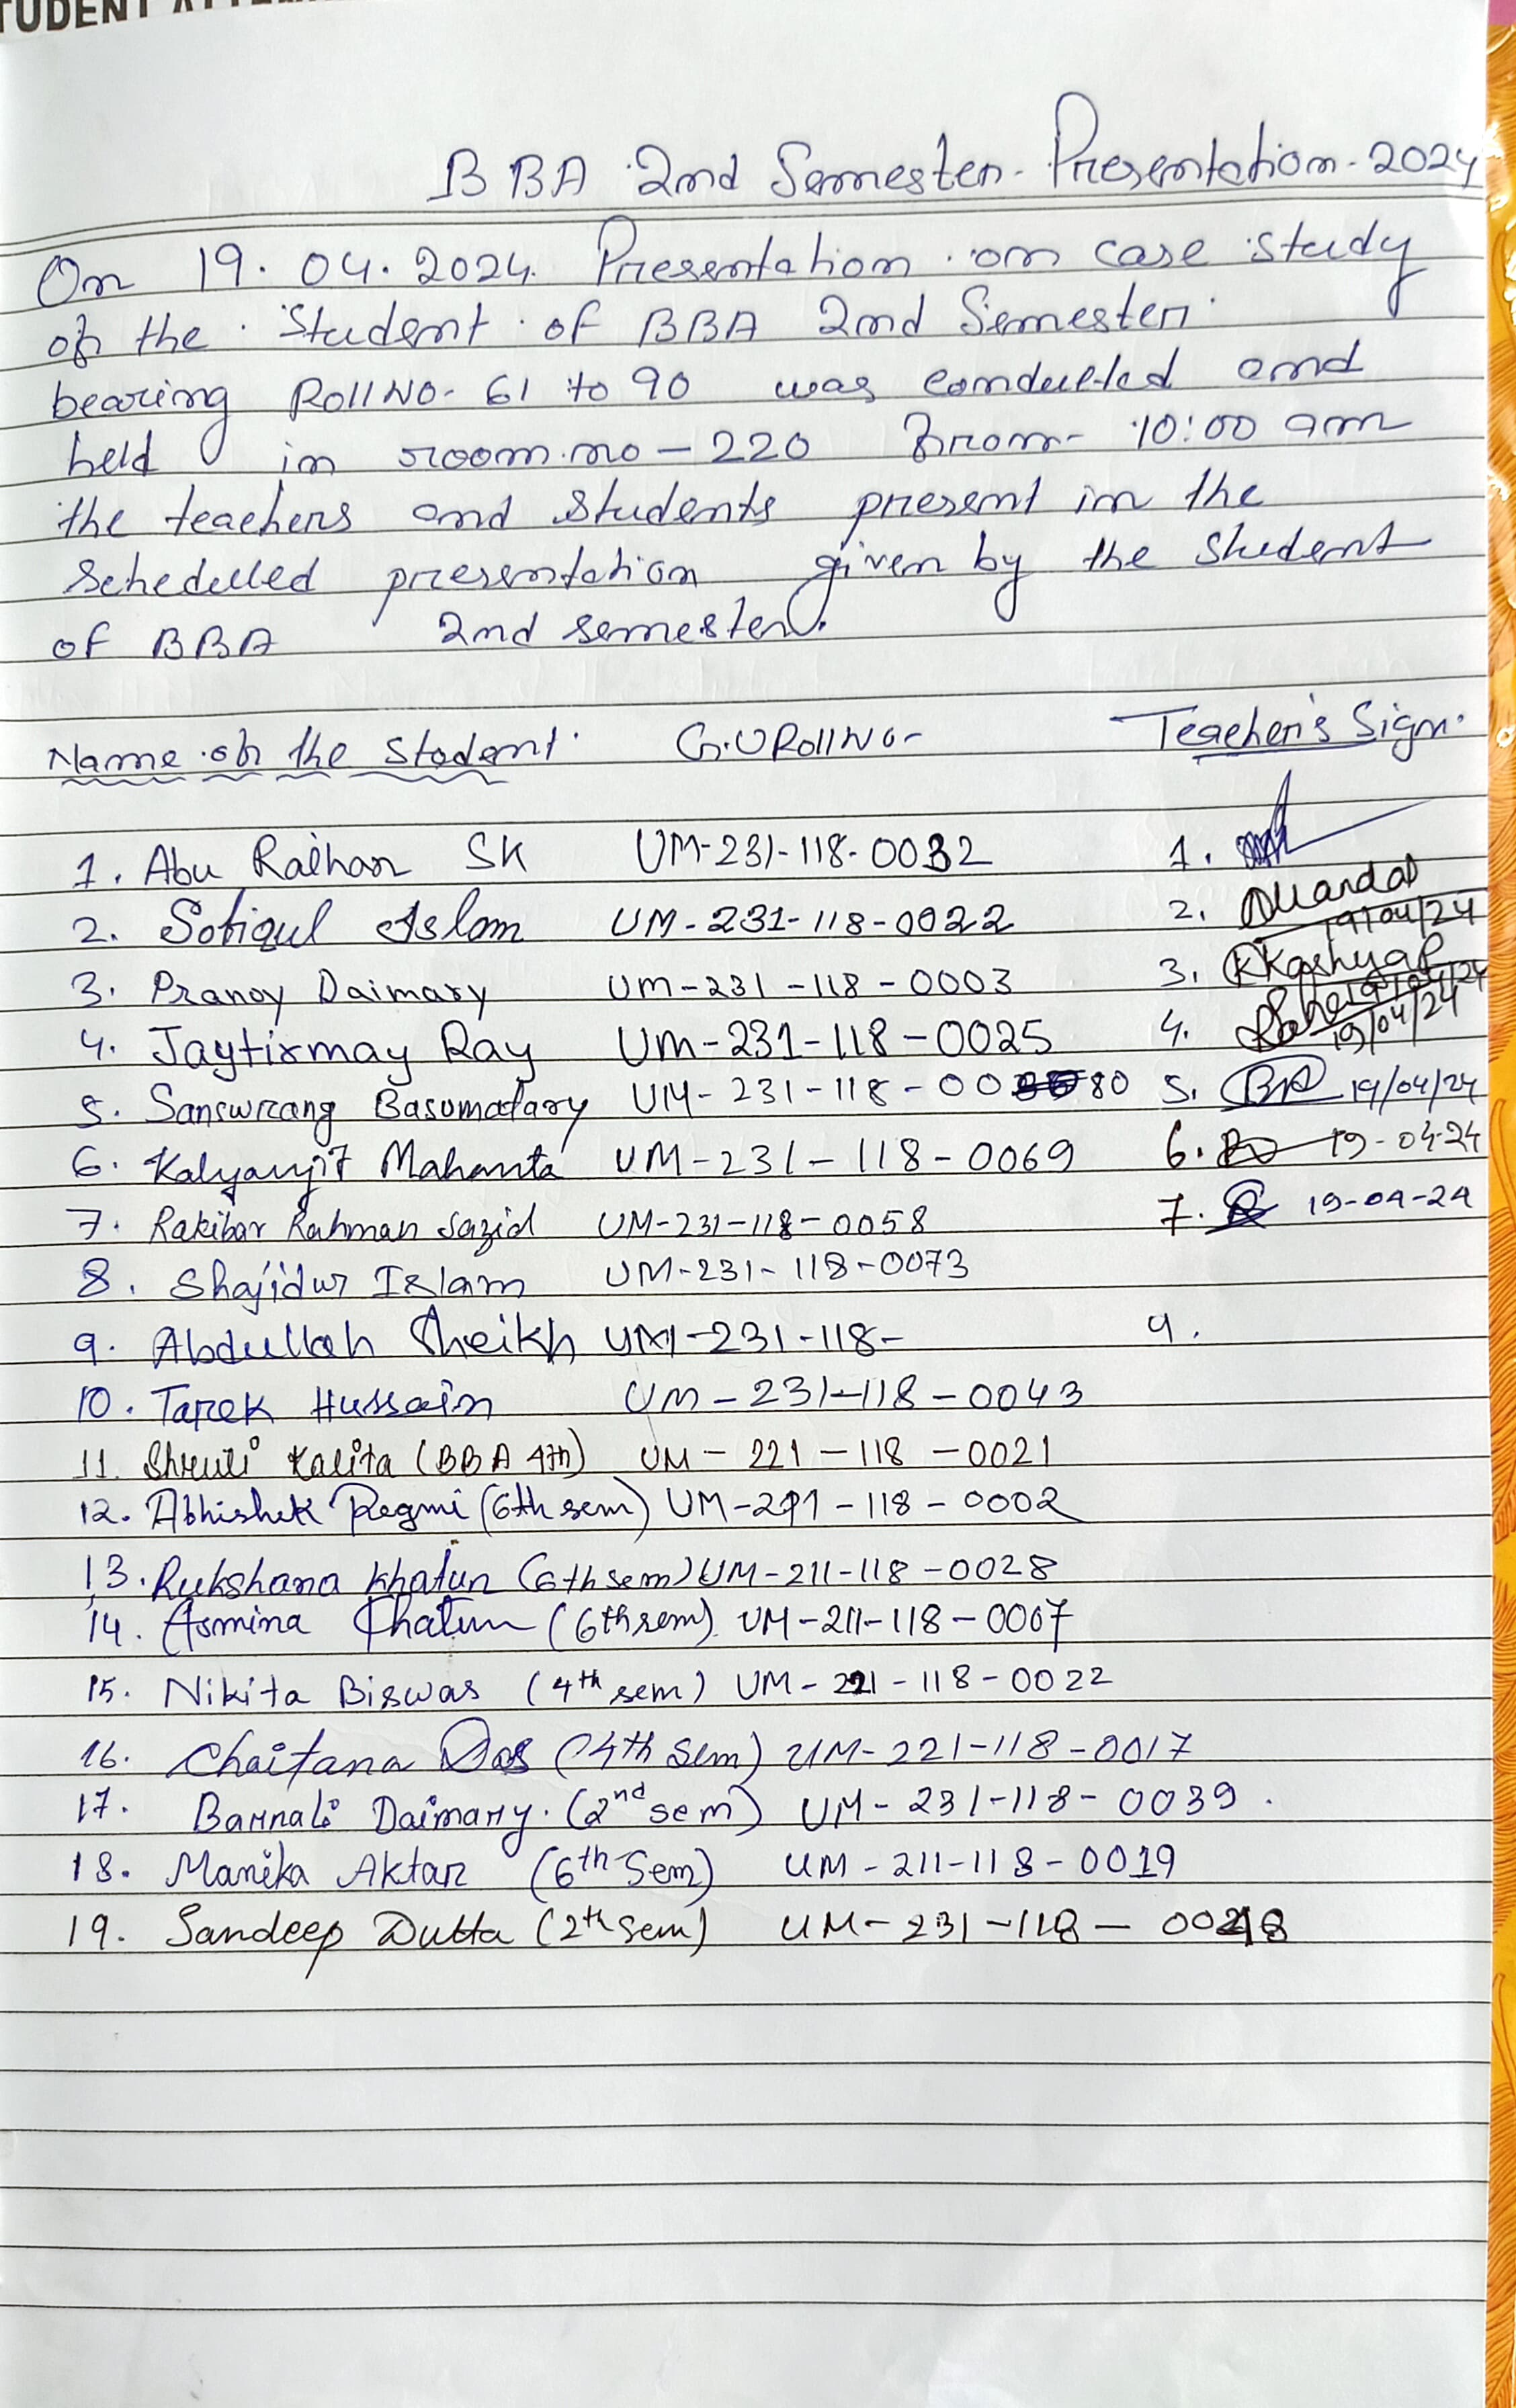 BBA 2nd Semester - Presentation - 2024
On 19.04.2024. Presentation on case study
of the Student of BBA 2nd Semester
bearing Roll No- 61 to 90 was conducted and
held in room no - 220 From - 10:00 am
the teachers and students present in the
schedulled presentation given by the student
of BBA 2nd semester.
Name of the Student G.U Roll No- Teacher's Sign.
1. Abu Raihan SK UM-231-118-0032 1.
2. Sofiqul Islam UM-231-118-0022 2. 19/04/24
3. Pranoy Daimary UM-231-118-0003 3. KKashyap 19/04/24
4. Jaytirmay Ray UM-231-118-0025 4. 19/04/24
5. Sanswrang Basumatary UM-231-118-00 80 5. 19/04/24
6. Kalyanjit Mahanta UM-231-118-0069 6. 19-04-24
7. Rakibar Rahman Sazid UM-231-118-0058 7. 19-04-24
8. Shajidur Islam UM-231-118-0073
9. Abdullah Sheikh UM-231-118- 9.
10. Tarek Hussain UM-231-118-0043
11. Kalita (BBA 4th) UM-221-118-0021
12. Abhishek Regmi (6th sem) UM-211-118-0002
13. Rukshana Khatun (6th sem) UM-211-118-0028
14. Asmina Khatun (6th sem) UM-211-118-0007
15. Nikita Biswas (4th sem) UM-221-118-0022
16. Chaitana Das (4th Sem) UM-221-118-0017
17. Barnali Daimary. (2nd sem) UM-231-118-0039.
18. Manika Aktar (6th Sem) UM-211-118-0019
19. Sandeep Dutta (2th Sem) UM-231-118-